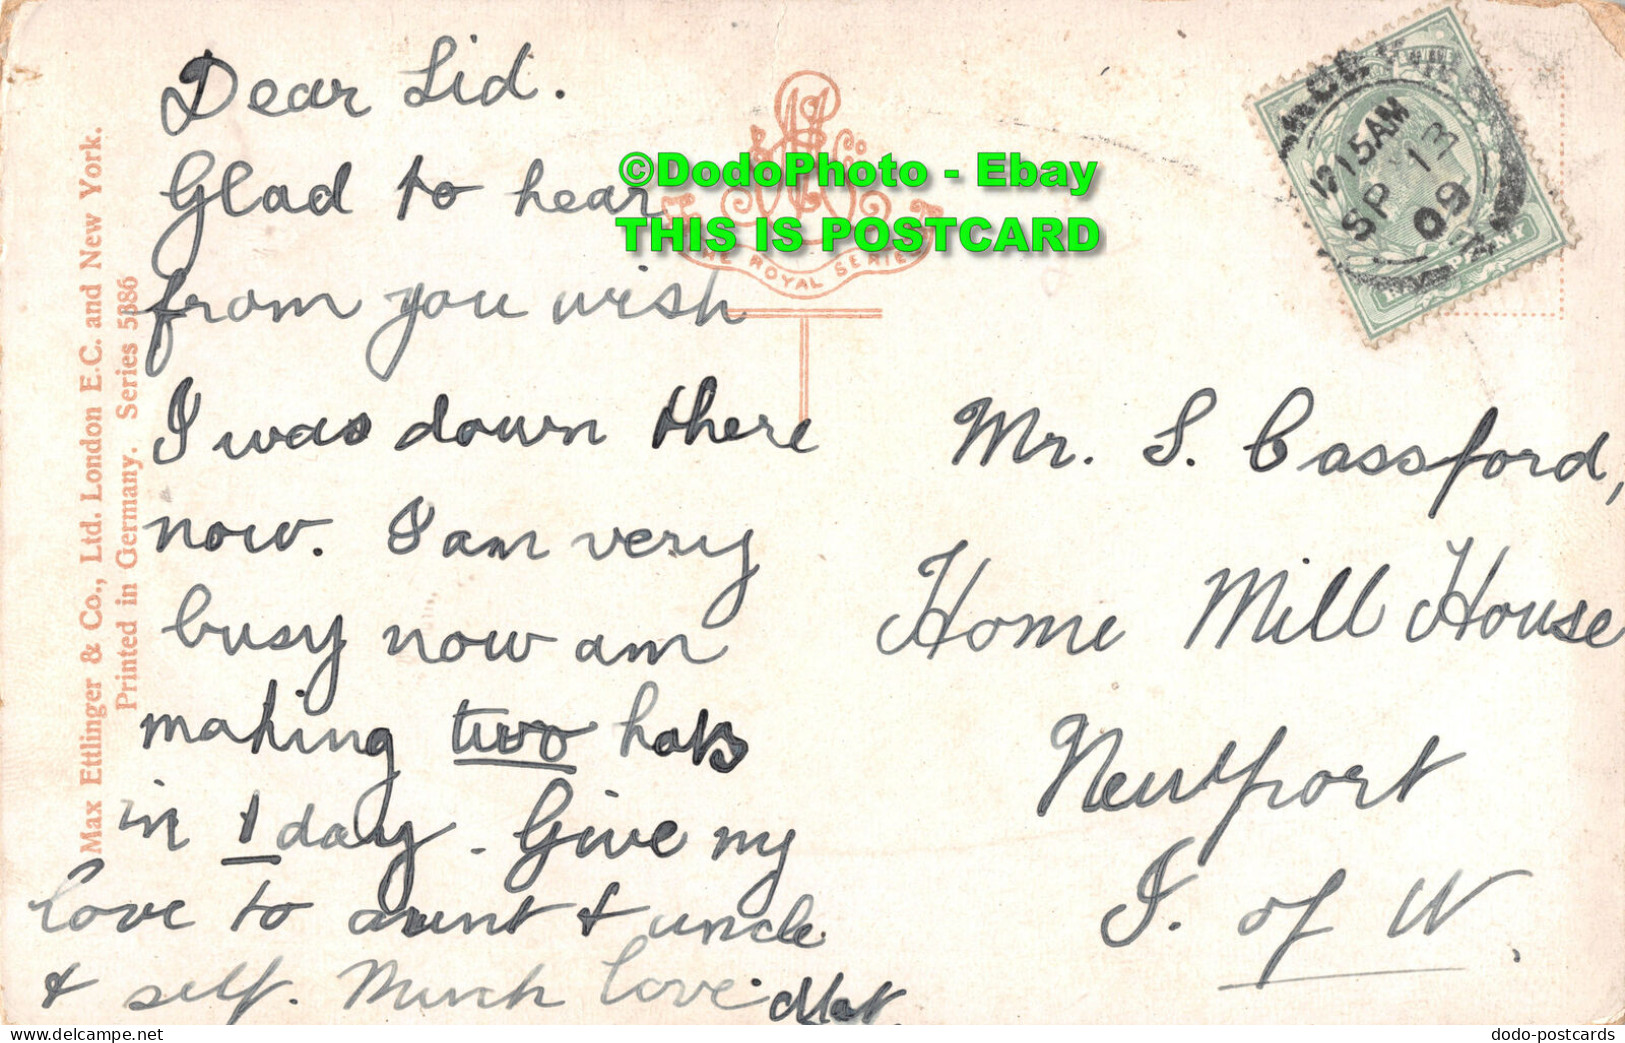 Dear Sid.
Glad to hear
from you wish
I was down there
now. I am very
busy now am
making two hats
in 1 day. Give my
love to aunt & uncle
& self. Much love. Mat.
Mr. S. Cassford,
Home Mill House
Newport
I. of W.
Max Ettlinger & Co., Ltd. London E.C. and New York.
Printed in Germany. Series 5386
THE ROYAL SERIES
©DodoPhoto - Ebay
THIS IS POSTCARD
12 15 AM
SP 13
09
delcampe.net
dodo-postcards